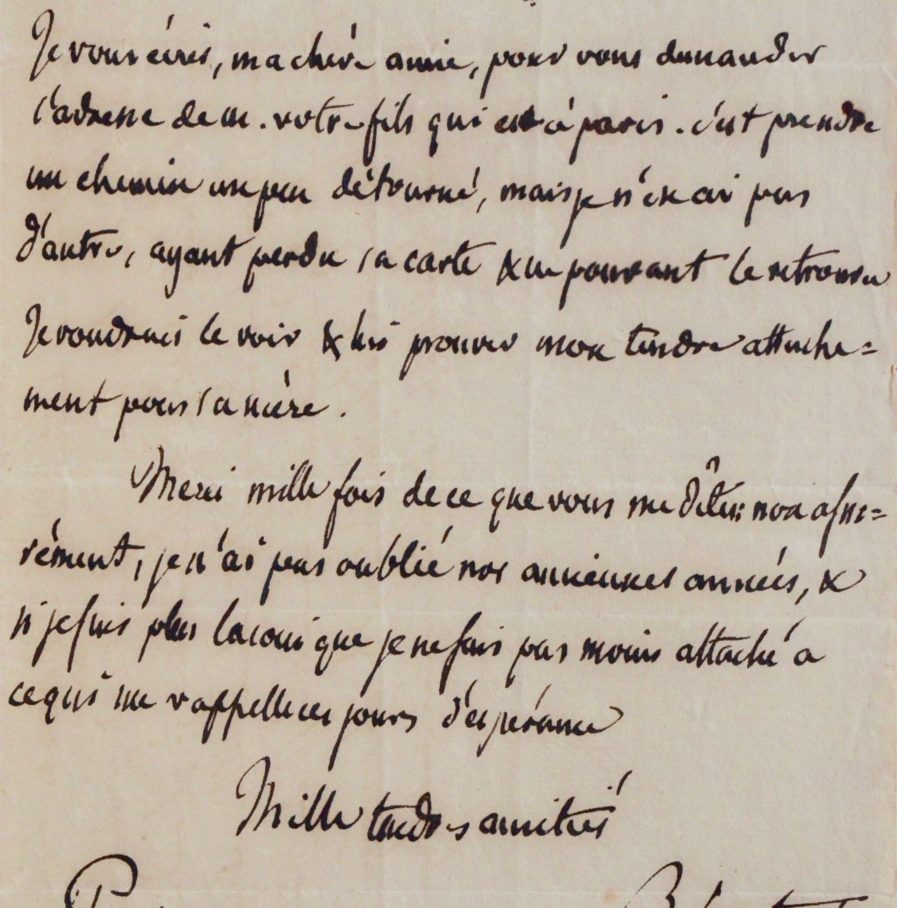 Je vous écris, ma chère amie, pour vous demander
l'adresse de m. votre fils qui est à paris. c'est prendre
un chemin un peu détourné, mais je n'en ai pas
d'autre, ayant perdu sa carte & ne pouvant le retrouver
Je voudrais le voir & lui prouver mon tendre attache=
ment pour sa mère.
Merci mille fois de ce que vous me dites: non assu=
rément, je n'ai pas oublié nos anciennes années, &
si je suis plus laconique je ne suis pas moins attaché a
ce qui me rappelle ces jours d'espérance
Mille tendres amitiés